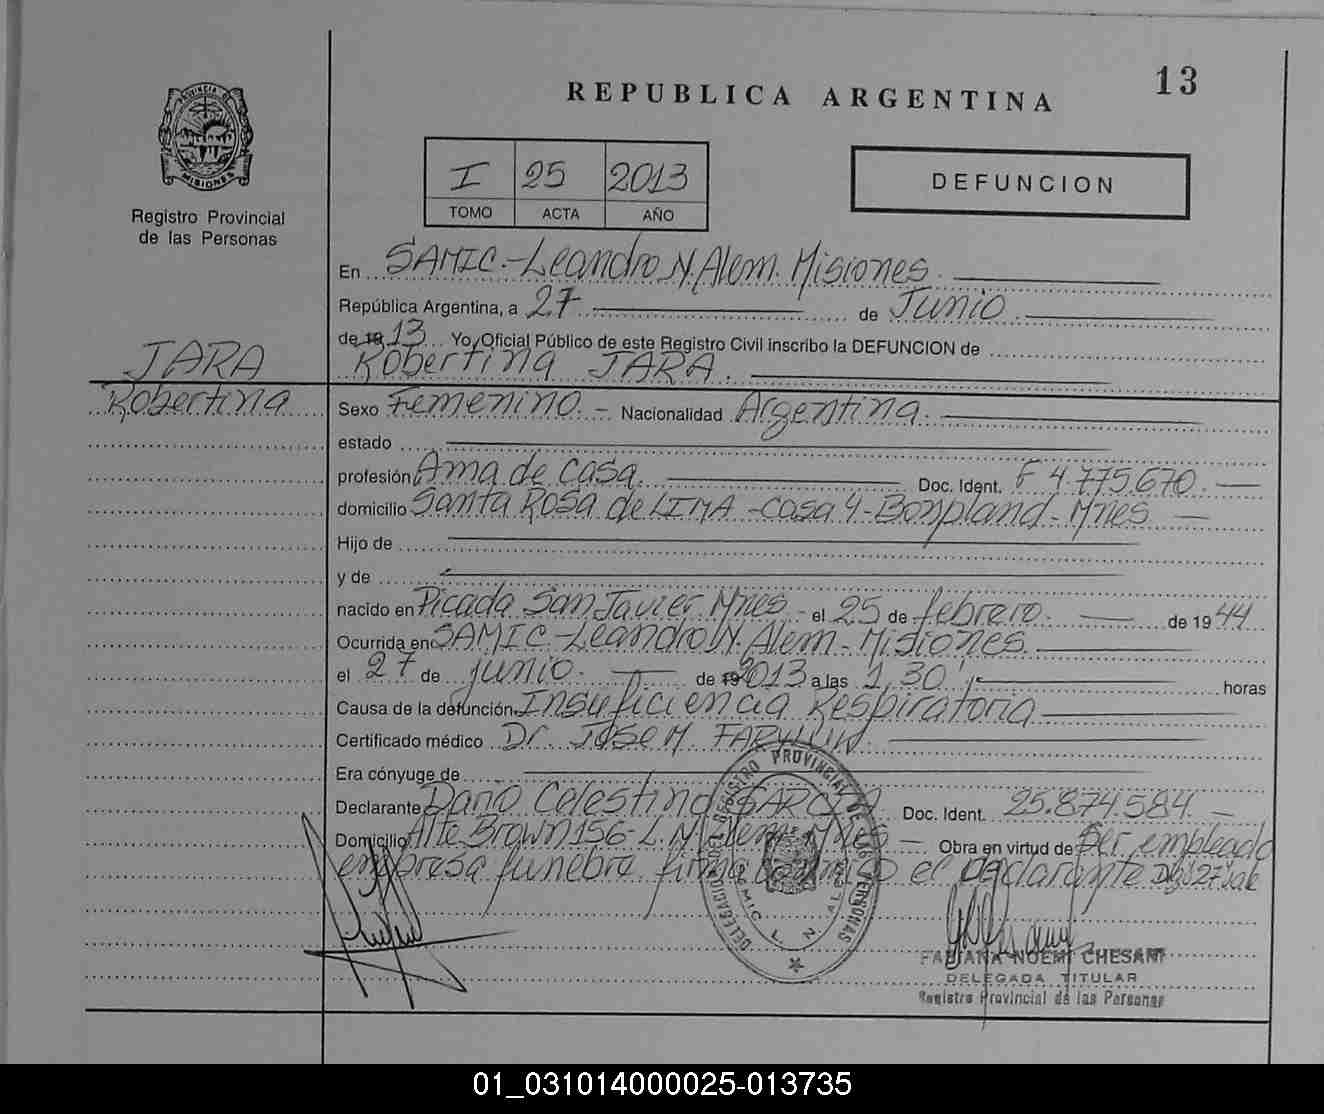 13
REPUBLICA ARGENTINA
PROVINCIA DE
MISIONES
Registro Provincial
de las Personas
I 25 2013
TOMO ACTA AÑO
DEFUNCION
En SAMIC.-Leandro N. Alem. Misiones.
República Argentina, a 27 de Junio
de 19 13 Yo, Oficial Público de este Registro Civil inscribo la DEFUNCION de
Robertina JARA.
JARA
Robertina
Sexo Femenino. - Nacionalidad Argentina.
estado
profesión Ama de casa. Doc. Ident. F 4.775.670.
domicilio Santa Rosa de LIMA -casa 4-Bonpland-Mnes
Hijo de
y de
nacido en Picada San Javier Mnes - el 25 de febrero. de 19 44
Ocurrida en SAMIC -Leandro N. Alem - Misiones.
el 27 de junio. de 19 2013 a las 1,30 horas
Causa de la defunción Insuficiencia Respiratoria
Certificado médico Dr. José M.
Era cónyuge de
Declarante Darío Celestino GARCIA Doc. Ident. 25.874.584
Domicilio Alte Brown 156-L.N. Alem Mnes - Obra en virtud de Ser empleado
empresa funebre firma conmigo el declarante
DELEGACION DEL REGISTRO PROVINCIAL DE LAS PERSONAS
SAMIC L. N. ALEM
FABIANA NOEMI CHESANI
DELEGADA TITULAR
Registro Provincial de las Personas
01_031014000025-013735